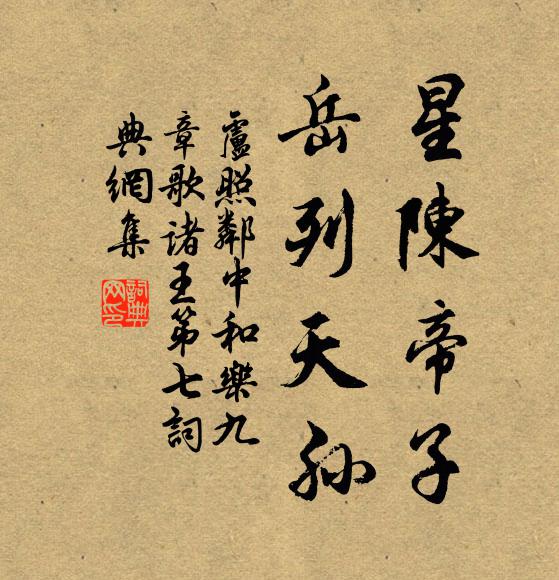 星陳帝子
岳列天孫
盧照鄰中和樂九
章歌諸王第七詞
典網集
詞典
网印